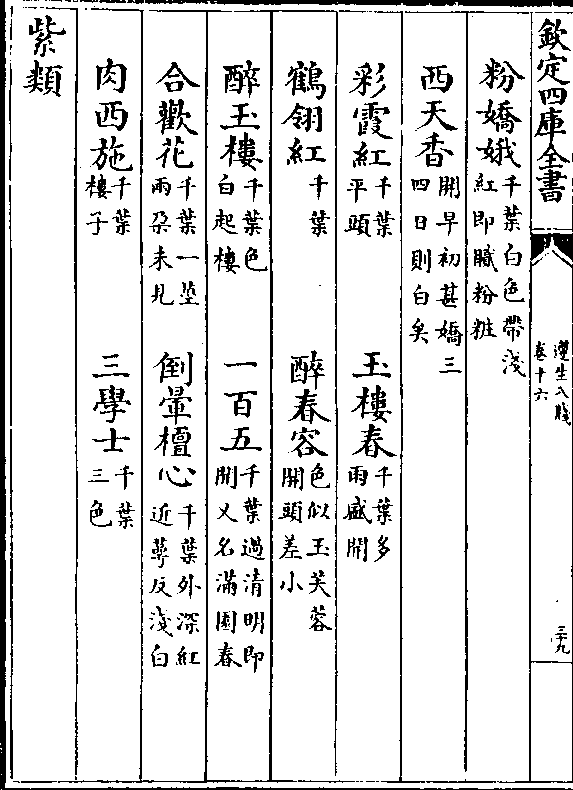 欽定四庫全書
遵生八牋
卷十六
三十九
粉嬌娥千葉白色帶淺紅即膩粉粧
西天香開早初甚嬌三四日則白矣
彩霞紅千葉平頭 玉樓春千葉多雨盛開
鶴翎紅千葉 醉春容色似玉芙蓉開頭差小
醉玉樓千葉色白起樓 一百五千葉過清明即開又名滿園春
合歡花千葉一莖兩朶未見 倒暈檀心千葉外深紅近萼反淺白
肉西施千葉樓子 三學士千葉三色
紫類